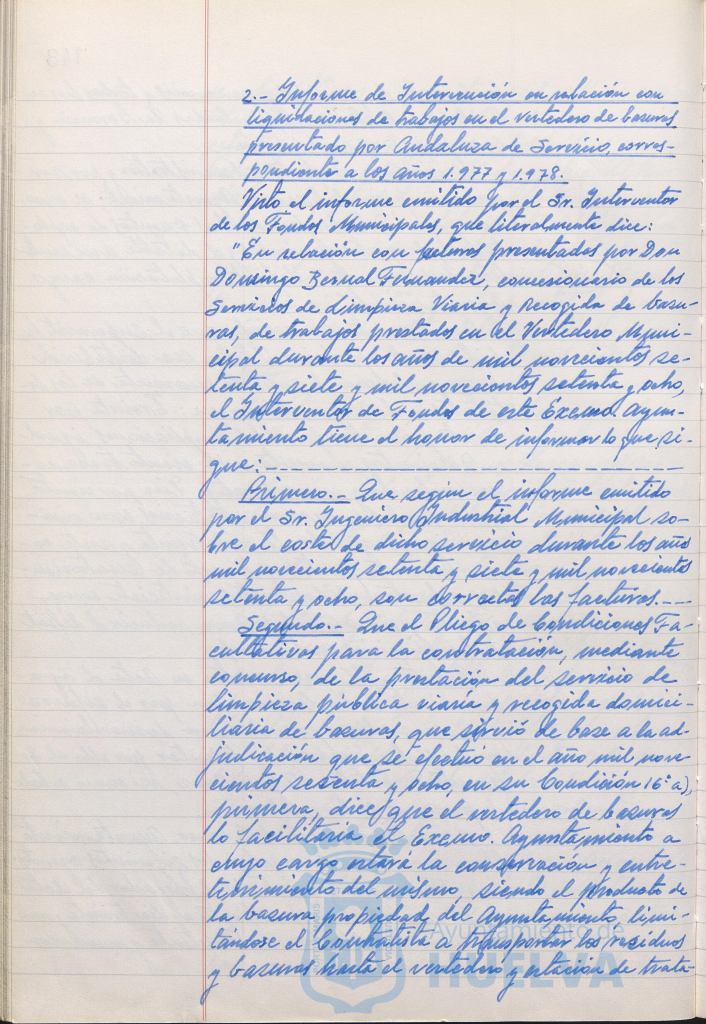 2.- Informe de Intervención en relación con
liquidaciones de trabajos en el vertedero de basuras
presentado por Andaluza de Servicio, corres-
pondiente a los años 1.977 y 1.978.
Visto el informe emitido por el Sr. Interventor
de los Fondos Municipales, que literalmente dice:
"En relación con facturas presentadas por Don
Domingo Bernal Fernandez, concesionario de los
Servicios de Limpieza Viaria y Recogida de basu-
ras, de trabajos prestados en el Vertedero Muni-
cipal durante los años de mil novecientos se-
tenta y siete y mil novecientos setenta y ocho,
el Interventor de Fondos de este Excmo. Ayun-
tamiento tiene el honor de informar lo que si-
gue:
Primero.- Que según el informe emitido
por el Sr. Ingeniero Industrial Municipal so-
bre el coste de dicho servicio durante los años
mil novecientos setenta y siete y mil novecientos
setenta y ocho, son correctas las facturas.---
Segundo.- Que el Pliego de Condiciones Fa-
cultativas para la contratación, mediante
concurso, de la prestación del servicio de
limpieza pública viaria y recogida domici-
liaria de basuras, que sirvió de base a la ad-
judicación que se efectuó en el año mil nove-
cientos sesenta y ocho, en su Condición 16ª a),
primera, dice que el vertedero de basuras
lo facilitaria el Excmo. Ayuntamiento a
cuyo cargo estará la conservación y entre-
tenimiento del mismo, siendo el producto de
la basura propiedad del Ayuntamiento, limi-
tándose el Contratista a transportar los residuos
y basuras hasta el vertedero y estación de trata-
Ayuntamiento de
HUELVA